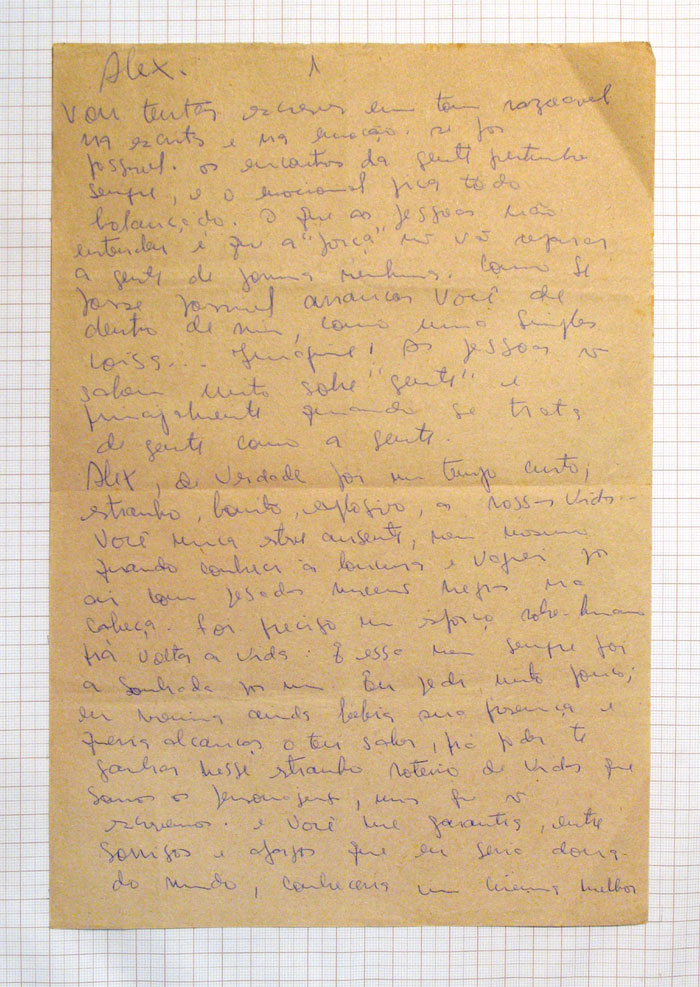 Alex. 1
Vou tentar escrever em tom razoável
na escrita e na emoção. se for
possível. os encontros da gente
sempre, e o emocional fica todo
balançado. O que as pessoas não
entendem é que a "força" vai separar
a gente de forma nenhuma. Como se
fosse possível arrancar você de
dentro de mim, como uma simples
coisa... Imagine! As pessoas ñ
sabem muito sobre "gente" e
principalmente quando se trata
de gente como a gente.
Alex, de verdade foi um tempo curto,
estranho, bonito, explosivo, as nossas vidas
Você nunca esteve ausente, nem mesmo
quando conheci a loucura e vaguei por
aí com pesadas nuvens negras na
cabeça. Foi preciso um esforço sobre-humano
prá volta a vida. E essa nem sempre foi
a sonhada por mim. Eu pedi, muito pouco,
eu menina ainda bebia sua presença e
queria alcançar o teu saber, prá poder te
ganhar nesse estranho roteiro de vidas que
somos os personagens, mas que ñ
escrevemos. e você me garantia, entre
sorrisos e afagos que eu seria dona
do mundo, conheceria um cinema melhor